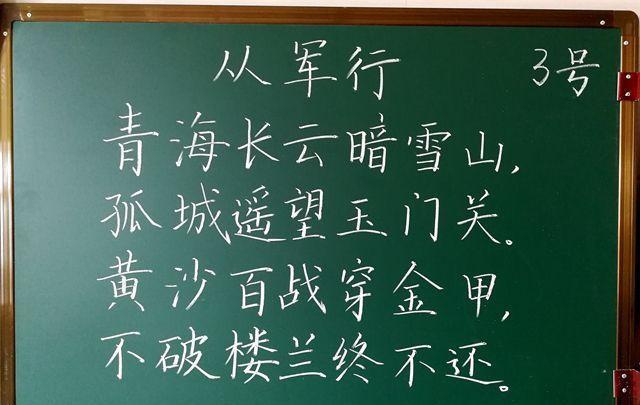 从军行 3号
青海长云暗雪山,
孤城遥望玉门关。
黄沙百战穿金甲,
不破楼兰终不还。